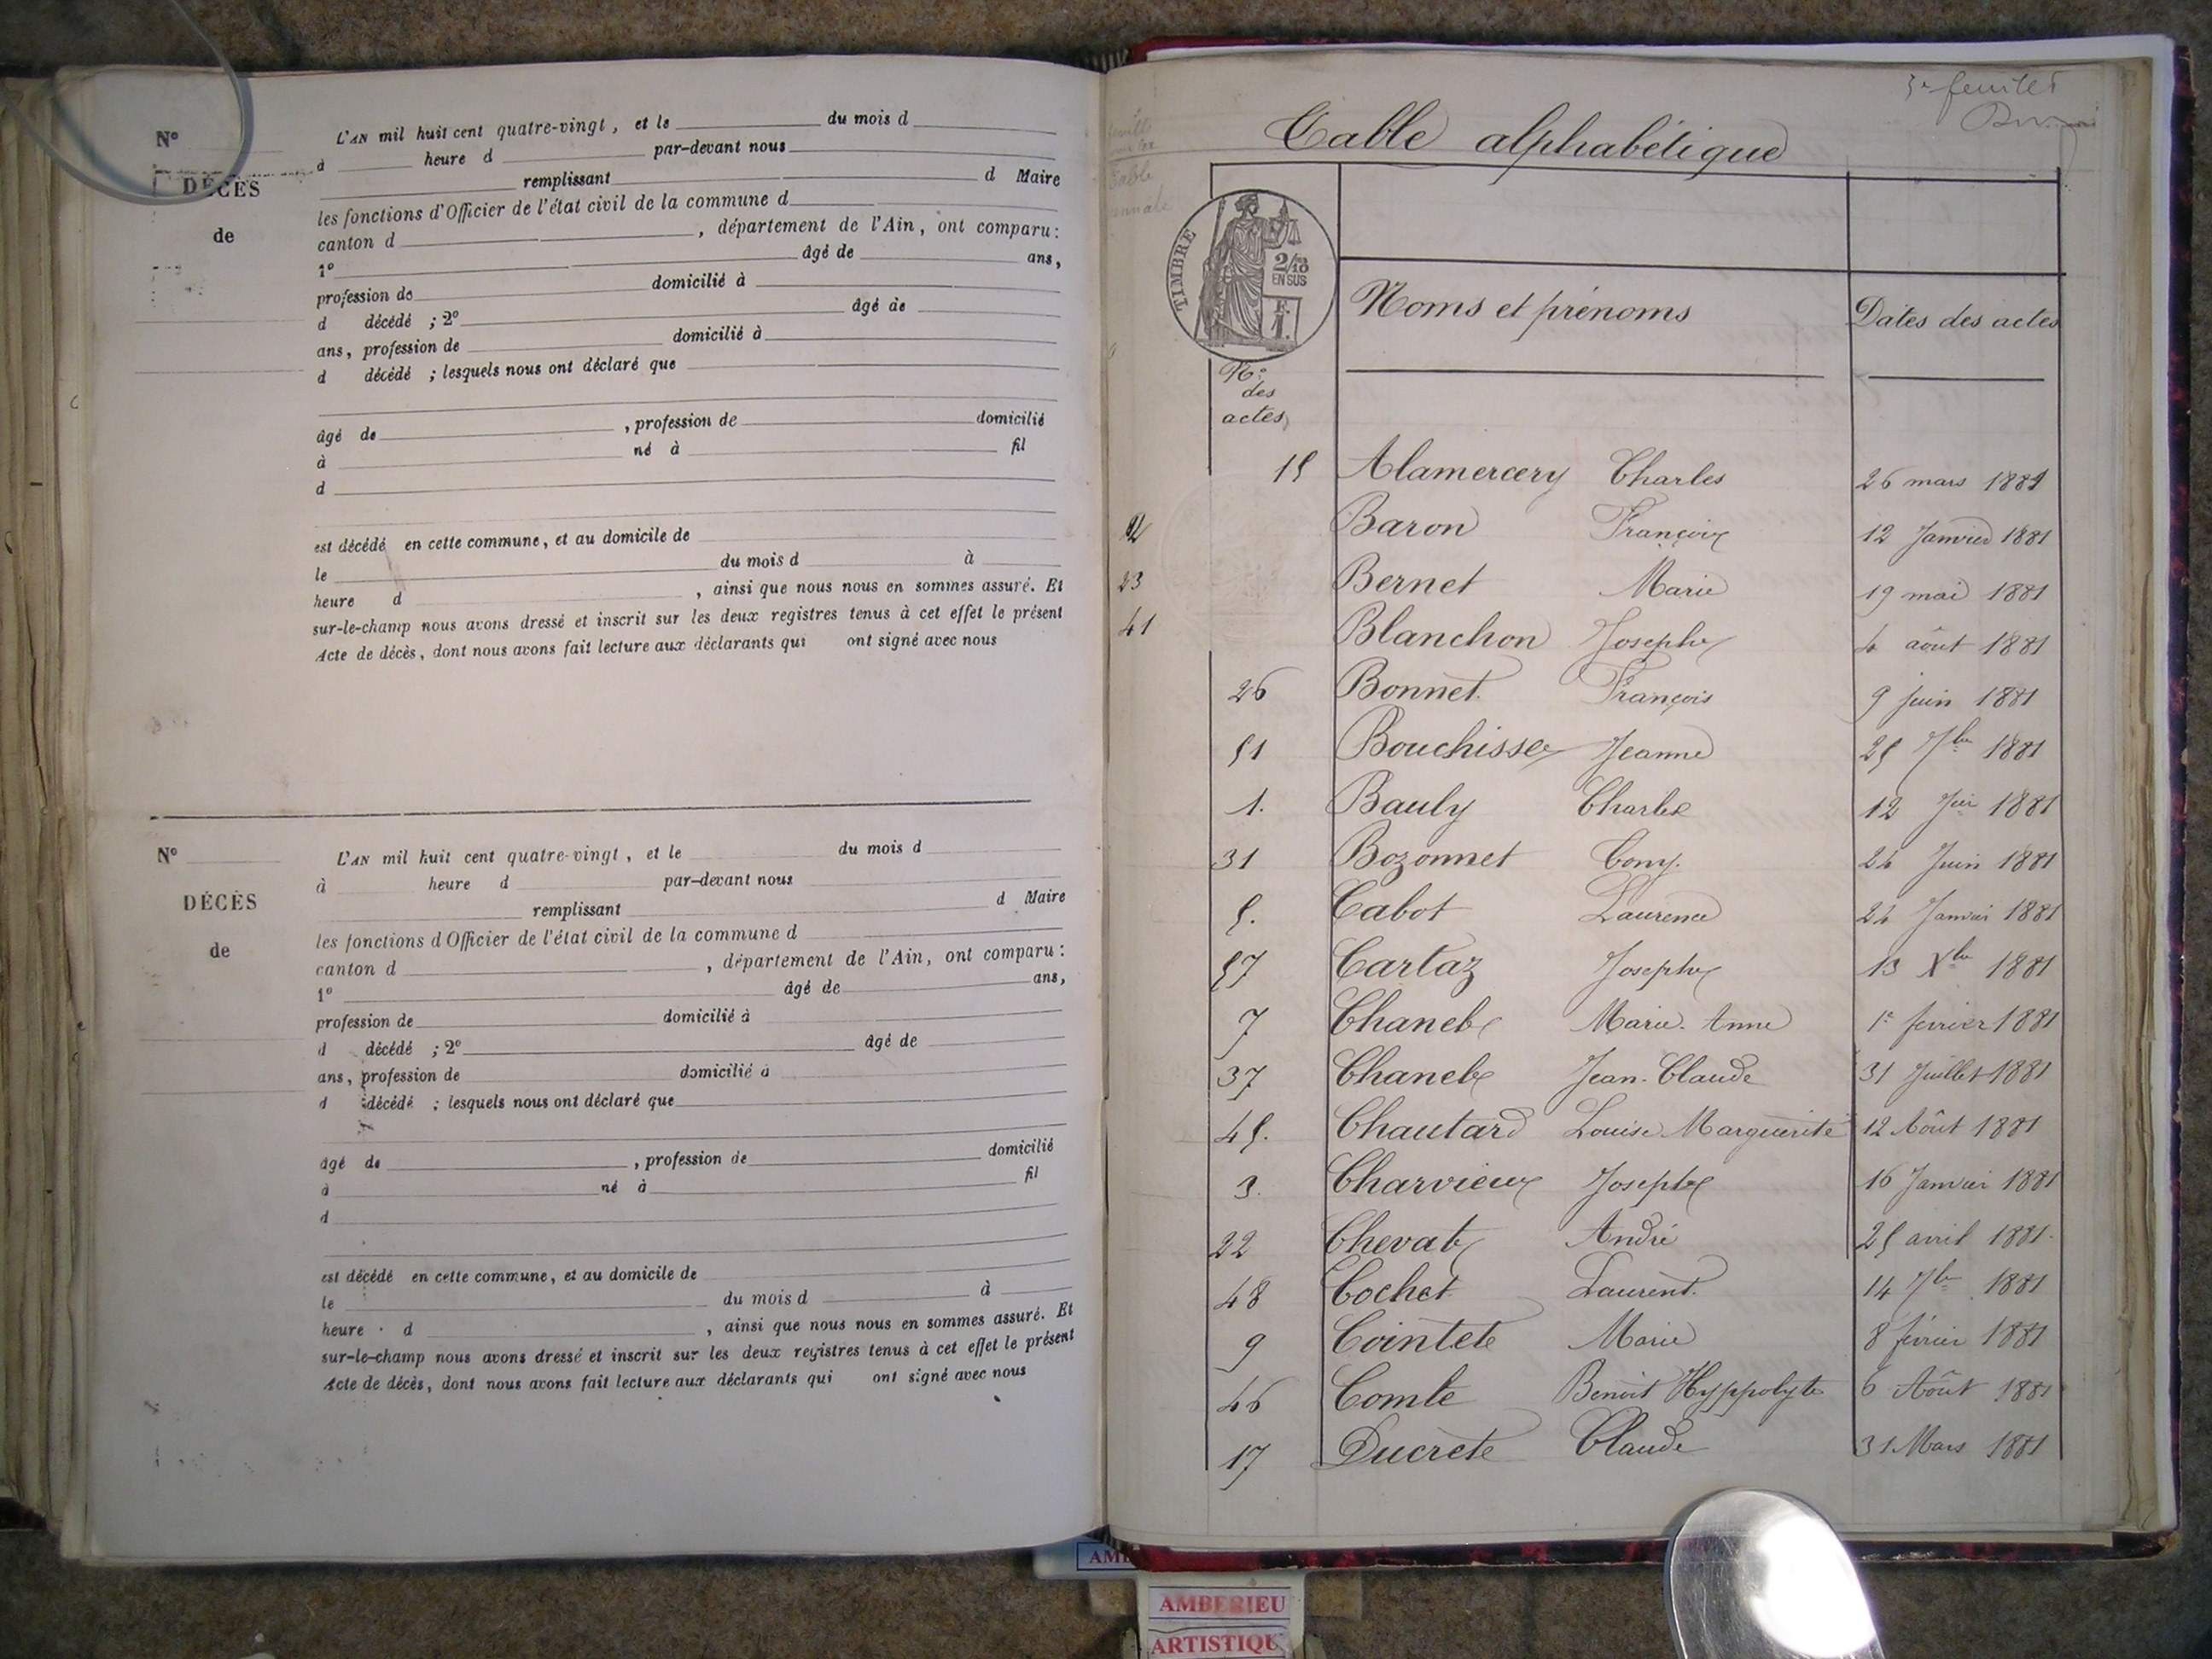 N°
DÉCÈS
de
L'AN mil huit cent quatre-vingt , et le du mois d
à heure d par-devant nous
remplissant d Maire
les fonctions d'Officier de l'état civil de la commune d
canton d , département de l'Ain, ont comparu :
1° âgé de ans,
profession de domicilié à
d décédé ; 2° âgé de
ans, profession de domicilié à
d décédé ; lesquels nous ont déclaré que
âgé de , profession de domicilié
à né à fil
d
est décédé en cette commune, et au domicile de
le du mois d à
heure d , ainsi que nous nous en sommes assuré. Et
sur-le-champ nous avons dressé et inscrit sur les deux registres tenus à cet effet le présent
Acte de décès, dont nous avons fait lecture aux déclarants qui ont signé avec nous
N°
DÉCÈS
de
L'AN mil huit cent quatre-vingt , et le du mois d
à heure d par-devant nous
remplissant d Maire
les fonctions d'Officier de l'état civil de la commune d
canton d , département de l'Ain, ont comparu :
1° âgé de ans,
profession de domicilié à
d décédé ; 2° âgé de
ans, profession de domicilié à
d décédé ; lesquels nous ont déclaré que
âgé de , profession de domicilié
à né à fil
d
est décédé en cette commune, et au domicile de
le du mois d à
heure d , ainsi que nous nous en sommes assuré. Et
sur-le-champ nous avons dressé et inscrit sur les deux registres tenus à cet effet le présent
Acte de décès, dont nous avons fait lecture aux déclarants qui ont signé avec nous
3e feuillet
Table alphabétique
TIMBRE
2/10
EN SUS
F.
1.
Nos des actes
Noms et prénoms
Dates des actes
15 Alamercery Charles 26 mars 1881
2 Baron François 12 Janvier 1881
23 Bernet Marie 19 mai 1881
41 Blanchon Joseph 4 août 1881
26 Bonnet François 9 juin 1881
51 Bouchisse Jeanne 25 7bre 1881
1. Bauly Charles 12 Jer 1881
31 Bozonnet Cony. 24 Juin 1881
5. Cabot Laurence 24 Janvier 1881
57 Cartaz Joseph 13 Xbre 1881
7 Chanel Marie-Anne 1er fevrier 1881
37 Chanel Jean-Claude 31 Juillet 1881
45. Chautard Louise Marguerite 12 Août 1881
3. Charvieux Joseph 16 Janvier 1881
22 Chevat André 25 avril 1881.
48 Cochet Laurent. 14 7bre 1881
9 Cointete Marie 8 février 1881
46 Comte Benoit Hyppolyte 6 Août 1881
17 Ducrete Claude 31 Mars 1881
AMBERIEU
ARTISTIQU